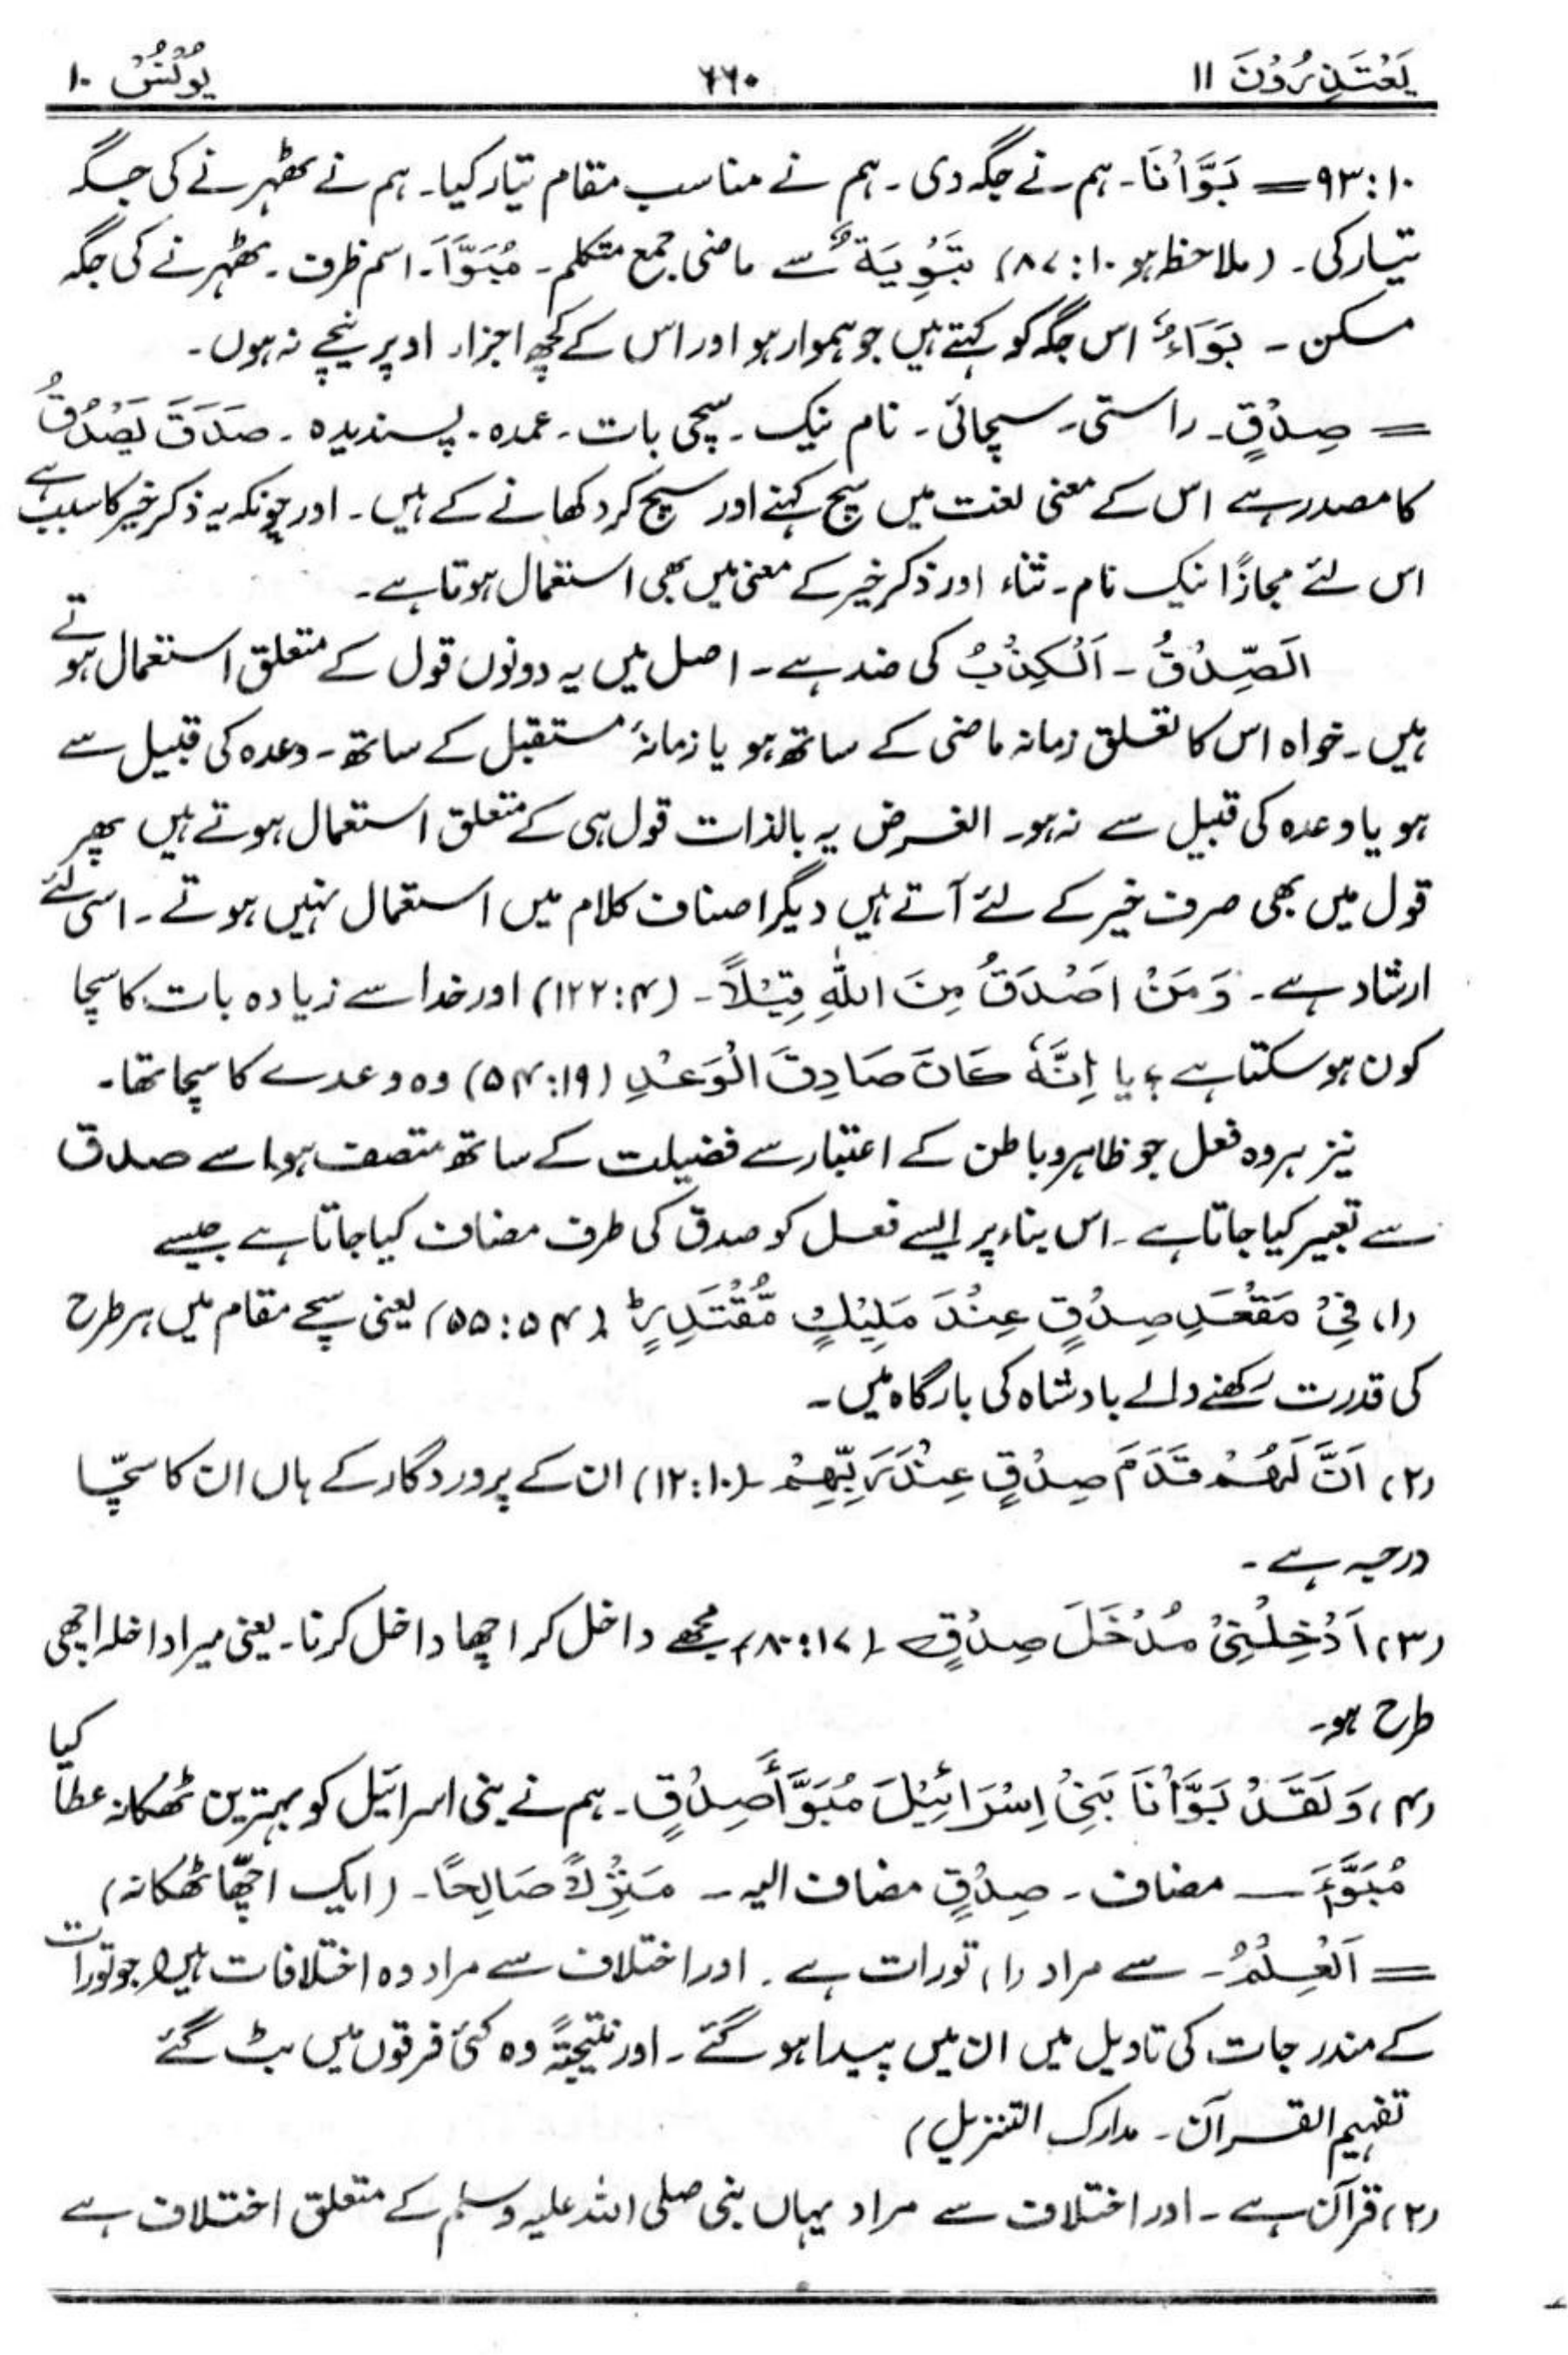 یَعْتَذِرُوْنَ ۱۱ ۶۶۰ یُوْنُسُ ۱۰
۱۰:۹۳ = بَوَّاْنَا۔ ہم نے جگہ دی۔ ہم نے مناسب مقام تیار کیا۔ ہم نے ٹھہرنے کی جگہ
تیار کی۔ (ملاحظہ ہو ۱۰:۸۷) تَبْوِیَۃٌ سے ماضی جمع متکلم۔ مُبَوَّاَ۔ اسم ظرف۔ ٹھہرنے کی جگہ
مسکن۔ بَوَاءٌ اس جگہ کو کہتے ہیں جو ہموار ہو اور اس کے کچھ اجزاء اوپر نیچے نہ ہوں۔
= صِدْقٍ۔ راستی۔ سچائی۔ نام نیک۔ سچی بات۔ عمدہ۔ پسندیدہ۔ صَدَقَ یَصْدُقُ
کا مصدر ہے اس کے معنی لغت میں سچ کہنے اور سچ کر دکھانے کے ہیں۔ اور چونکہ یہ ذکر خیر کا سبب ہے
اس لئے مجازًا نیک نام۔ ثناء اور ذکر خیر کے معنی میں بھی استعمال ہوتا ہے۔
اَلصِّدْقُ۔ اَلْکِذْبُ کی ضد ہے۔ اصل میں یہ دونوں قول کے متعلق استعمال ہوتے
ہیں۔ خواہ اس کا تعلق زمانہ ماضی کے ساتھ ہو یا زمانۂ مستقبل کے ساتھ۔ وعدہ کی قبیل سے
ہو یا وعدہ کی قبیل سے نہ ہو۔ الغرض یہ بالذات قول ہی کے متعلق استعمال ہوتے ہیں پھر
قول میں بھی صرف خبر کے لئے آتے ہیں دیگر اصناف کلام میں استعمال نہیں ہوتے۔ اسی لئے
ارشاد ہے۔ وَمَنْ اَصْدَقُ مِنَ اللّٰہِ قِیْلًا۔ (۴:۱۲۲) اور خدا سے زیادہ بات کا سچا
کون ہو سکتا ہے؟ یا اِنَّہٗ کَانَ صَادِقَ الْوَعْدِ (۱۹:۵۴) وہ وعدے کا سچا تھا۔
نیز ہر وہ فعل جو ظاہر و باطن کے اعتبار سے فضیلت کے ساتھ متصف ہو اسے صدق
سے تعبیر کیا جاتا ہے۔ اس بناء پر ایسے فعل کو صدق کی طرف مضاف کیا جاتا ہے جیسے
(۱) فِیْ مَقْعَدِ صِدْقٍ عِنْدَ مَلِیْکٍ مُّقْتَدِرٍ (۵۴:۵۵) یعنی سچے مقام میں ہر طرح
کی قدرت رکھنے والے بادشاہ کی بارگاہ میں۔
(۲) اَنَّ لَہُمْ قَدَمَ صِدْقٍ عِنْدَ رَبِّہِمْ (۱۰:۱۲) ان کے پروردگار کے ہاں ان کا سچّا
درجہ ہے۔
(۳) اَدْخِلْنِیْ مُدْخَلَ صِدْقٍ (۱۷:۸۰) مجھے داخل کر اچھا داخل کرنا۔ یعنی میرا داخلہ اچھی
طرح ہو۔
(۴) وَلَقَدْ بَوَّاْنَا بَنِیْ اِسْرَائِیْلَ مُبَوَّأَ صِدْقٍ۔ ہم نے بنی اسرائیل کو بہترین ٹھکانہ عطا کیا
مُبَوَّءَ — مضاف۔ صِدْقٍ مضاف الیہ۔ مَنْزِلًا صَالِحًا۔ (ایک اچّھا ٹھکانہ)
= اَلْعِلْمُ۔ سے مراد (۱) تورات ہے۔ اور اختلاف سے مراد وہ اختلافات ہیں جو تورات
کے مندرجات کی تاویل میں ان میں پیدا ہو گئے۔ اور نتیجۃً وہ کئی فرقوں میں بٹ گئے
تفہیم القرآن۔ مدارک التنزیل)
(۲) قرآن ہے۔ اور اختلاف سے مراد یہاں نبی صلی اللہ علیہ وسلم کے متعلق اختلاف ہے